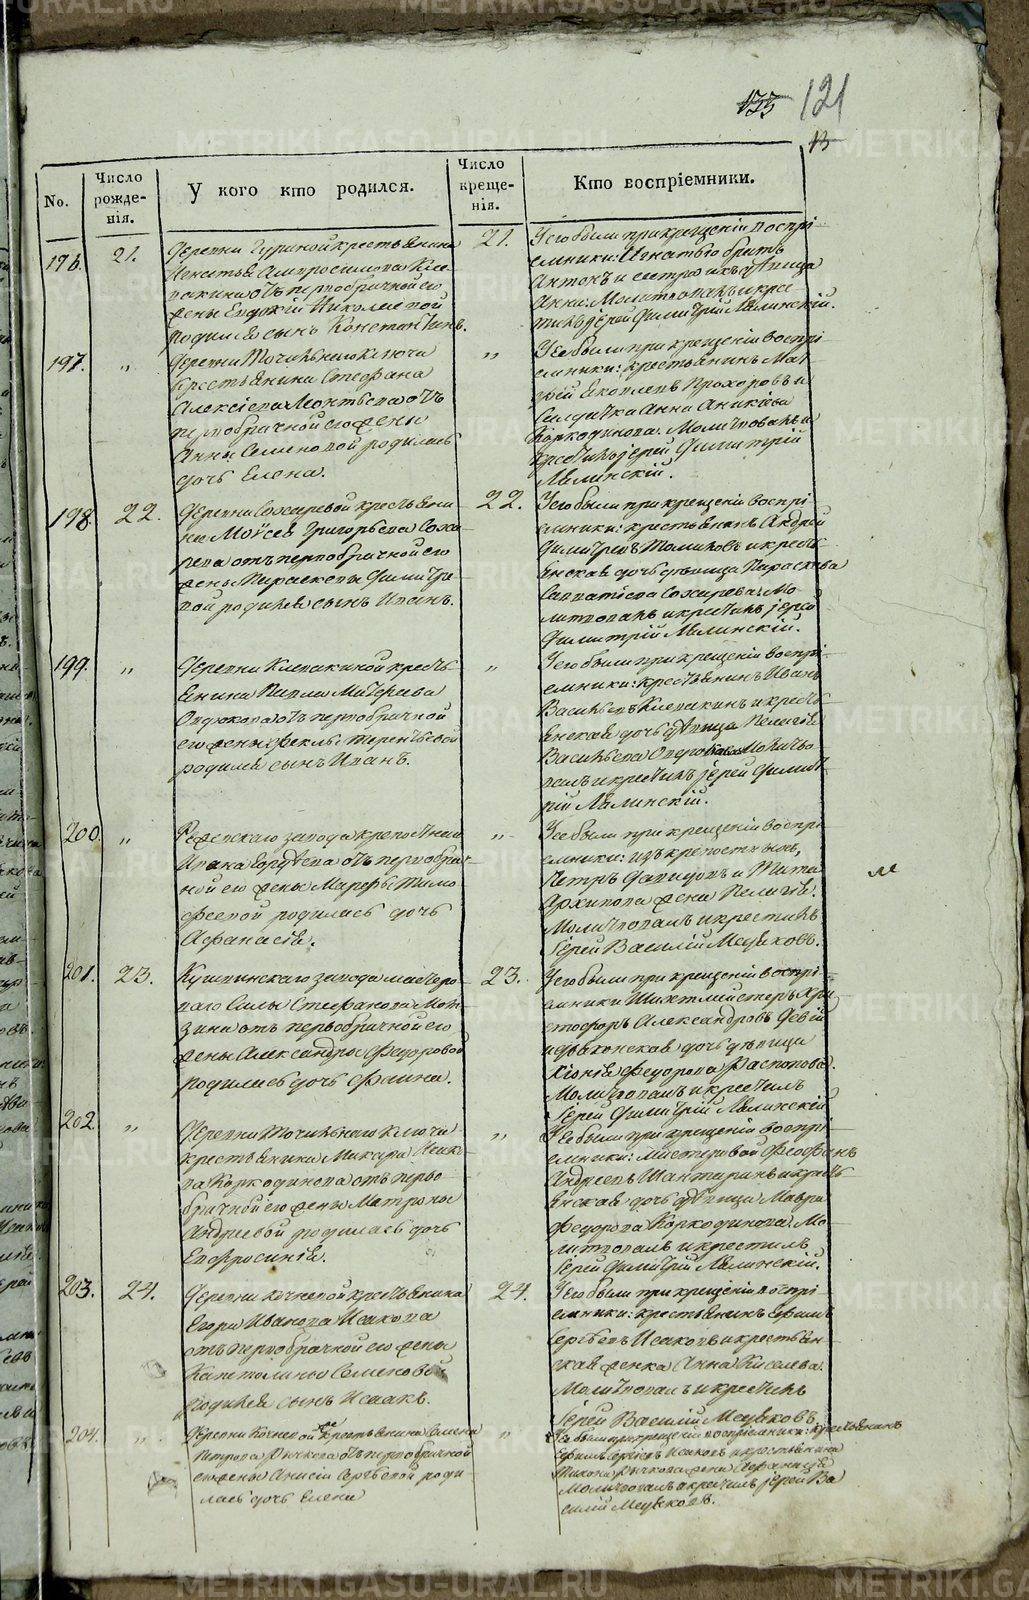 METRIKI.GASO-URAL.RU
133 121
13
No. Число рожде- нія. У кого кто родился. Число креще- нія. Кто воспріемники.
196. 21. Деревни Гуриной крестьянина
Игнатья Амвросимова Кле-
пакина отъ первобрачной его
жены Евдокіи Николаевой
родился сынъ Константинъ.
21. У его были при крещеніи воспрі-
емники: Игнатьева братъ
Антонъ и сестра ихъ дѣвица
Анна. Молитвовалъ и кре-
тилъ іерей Димитрій Лялинскій.
197. „ Деревни Точильнаго Ключа
крестьянина Стефана
Алексіева Леонтьева отъ
первобрачной его жены
Анны Семеновой родилась
дочь Елена.
„ У ее были при крещеніи воспрі-
емники: крестьянинъ Мат-
ѳій Прохоровъ и
Солдатка Анна Аникіева
Коркодинова. Молитвовалъ и
крестилъ іерей Димитрій
Лялинскій.
198. 22. Деревни Сохаревой крестьяни-
на Моѵсея Григорьева Соха-
рева отъ первобрачной его
жены Параскевы Димитріе-
вой родился сынъ Иванъ.
22. У его были при крещеніи воспрі-
емники: крестьянинъ Андрей
Димитріевъ Толмиковъ и кресть-
янская дочь дѣвица Параскева
Савватіева Сохарева. Мо-
литвовалъ и крестилъ іерей
Димитрій Лялинскій.
199. „ Деревни Клепакиной кресть-
янина Павла Матѳеева
Овдюкова отъ первобрачной
его жены Ѳеклы Терентьевой
родился сынъ Иванъ.
„ У его были при крещеніи воспрі-
емники: крестьянинъ Иванъ
Васильевъ Клепакинъ и кресть-
янская дочь дѣвица Пелагія
Васильева Молитво-
валъ и крестилъ іерей Димит-
рій Лялинскій.
200. „ Режевскаго завода крепостнаго
Ивана Гордѣева отъ первобрач-
ной его жены Марѳы Тимо-
ѳеевой родилась дочь
Аѳанасія.
„ У ее были при крещеніи воспрі-
емники: изъ крепостныхъ,
Петръ Давидовъ и Тита
Архипова жена Пелагія.
Молитвовалъ и крестилъ
Іерей Василій Мецяковъ.
201. 23. Кушвинскаго завода мастеро-
ваго Силы Стефанова Мот-
зина отъ первобрачной его
жены Александры Ѳедоровой
родилась дочь Фаина.
23. У ее были при крещеніи воспрі-
емники Шихтмейстеръ Хри-
стофоръ Александровъ Девій
и дьяконская дочь дѣвица
Хіонія Ѳедорова Распопова.
Молитвовалъ и крестилъ
Іерей Димитрій Лялинскій.
202. „ Деревни Точильнаго Ключа
крестьянина Макара Исако-
ва Коркодинова отъ перво-
брачной его жены Матроны
Андреевой родилась дочь
Евфросинія.
„ У ее были при крещеніи воспрі-
емники: мастеровой Ѳеофанъ
Андреевъ Шантуринъ и кресть-
янская дочь дѣвица Мавра
Ѳедорова Коркодинова. Мо-
литвовалъ и крестилъ
Іерей Димитрій Лялинскій.
203. 24. Деревни Кочневой крестьянина
Егора Иванова Исакова
отъ первобрачной его жены
Капетолины Семеновой
родился сынъ Исаакъ.
24. У его были при крещеніи воспрі-
емники: крестьянинъ Ефимъ
Сергѣевъ Исаковъ и крестьян-
ская женка Анна Киселева.
Молитвовалъ и крестилъ
Іерей Василій Мецяковъ.
204. „ Деревни Кочневой же крестьянина Семена
Петрова Рычкова отъ первобрачной
его жены Анисіи Сергѣевой роди-
лась дочь Елена
„ У ее были при крещеніи воспріемники: крестьянинъ
Ефимъ Сергѣевъ Исаковъ и крестьянина
Тихона Рычкова жена
Молитвовалъ и крестилъ іерей Ва-
силій Мецяковъ.